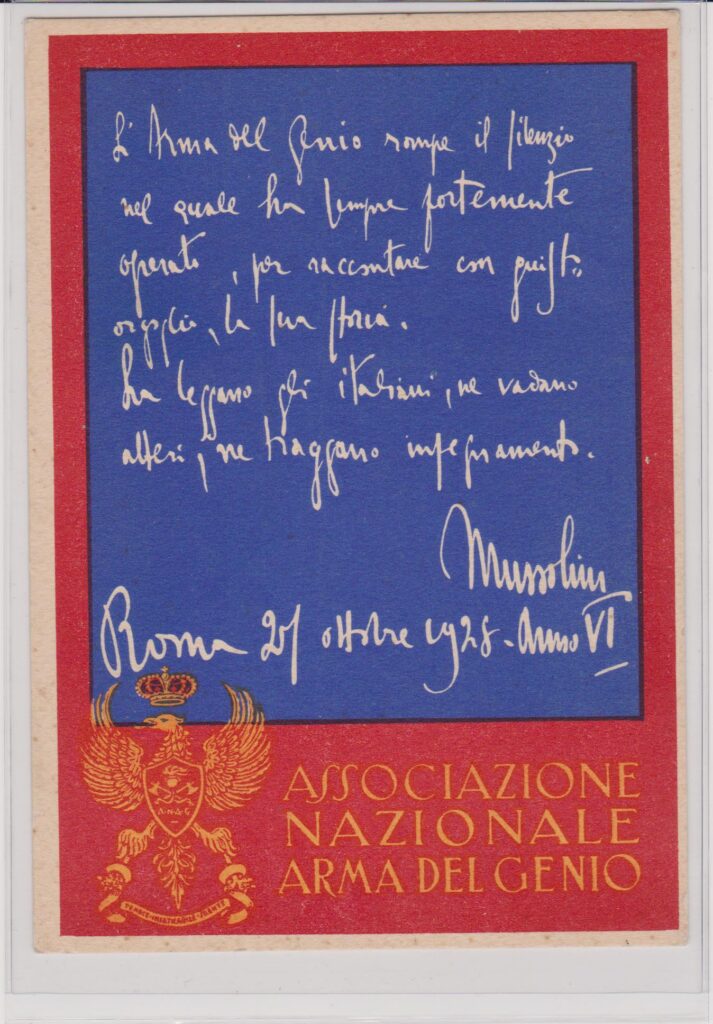 L'Arma del Genio rompe il silenzio
nel quale ha sempre fortemente
operato, per raccontare con giusto
orgoglio, la sua storia.
La leggano gli italiani, ne vadano
alteri, ne traggano insegnamento.
Mussolini
Roma ottobre 1928 - Anno VI
A.N.A.G.
ASSOCIAZIONE
NAZIONALE
ARMA DEL GENIO